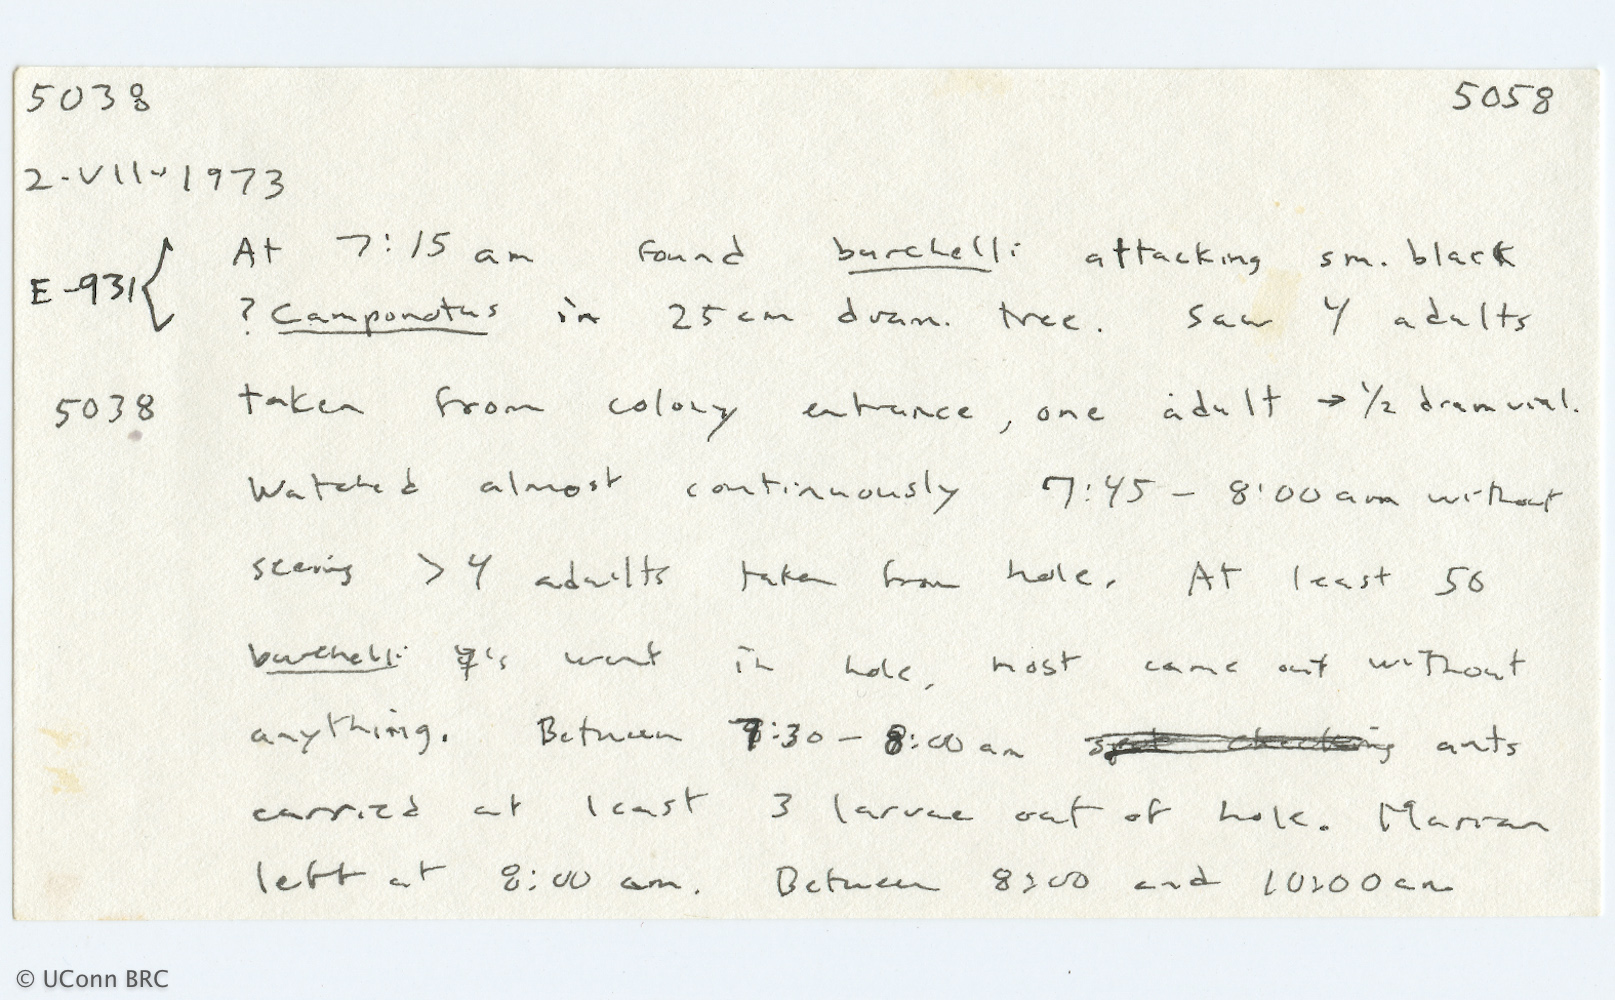 5038 5058
2-VII-1973
E-931 { At 7:15 am found burchelli attacking sm. black
? Camponotus in 25 cm diam. tree. Saw 4 adults
5038 taken from colony entrance, one adult → 1/2 dram vial.
Watched almost continuously 7:45 - 8:00 am without
seeing > 4 adults taken from hole. At least 50
burchelli ☿'s went in hole, most came out without
anything. Between 7:30 - 8:00 am spot checking ants
carried at least 3 larvae out of hole. Marian
left at 8:00 am. Between 8:00 and 10:00 am
© UConn BRC